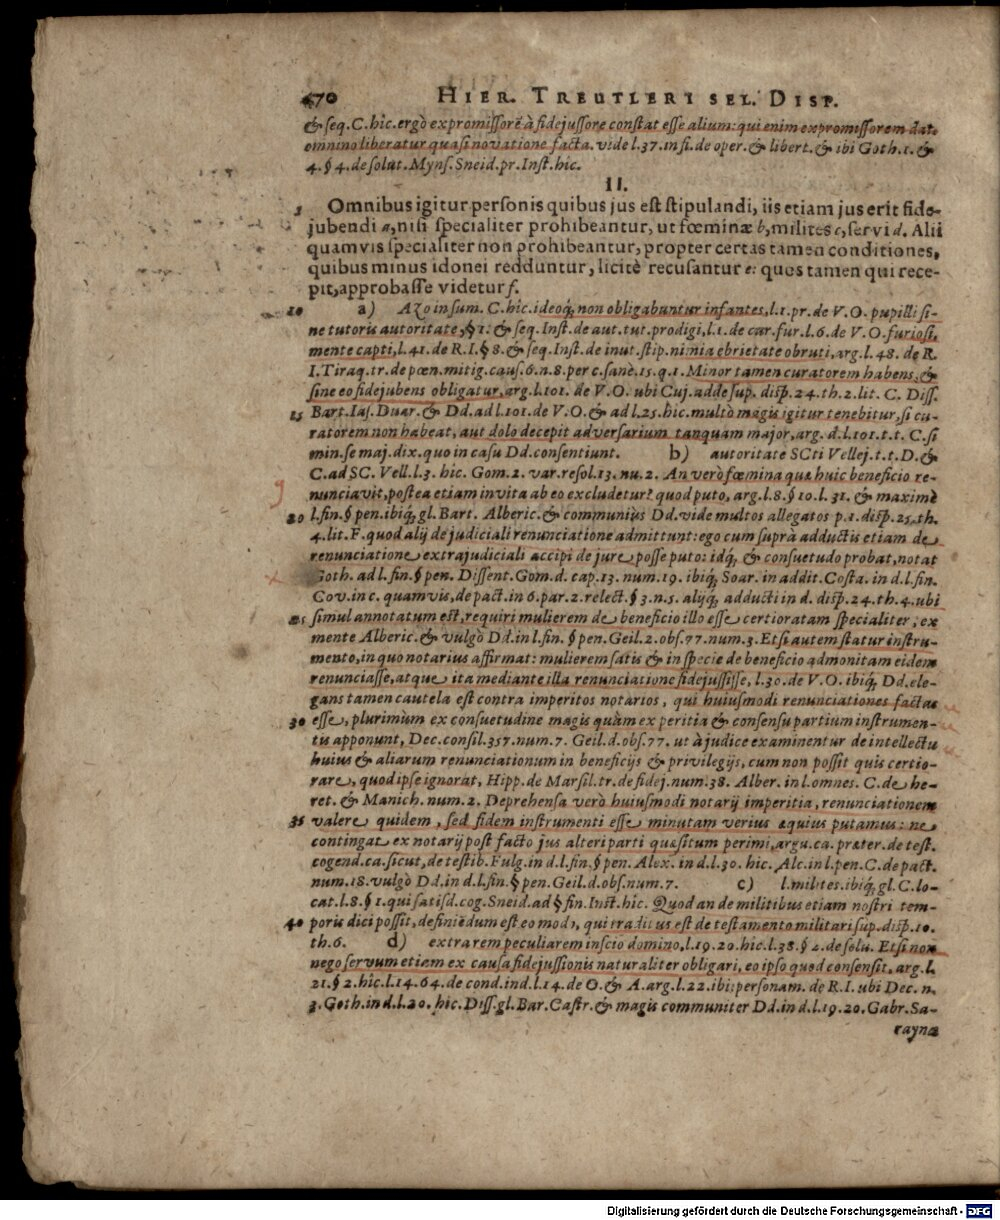 470 HIER. TREUTLERI SEL. DISP.
& seq. C. hîc. ergò expromissorē à fidejussore constat esse alium: qui enim expromissorem dat,
omnino liberatur quasi novatione facta. vide l. 37. in fi. de oper. & libert. & ibi Goth. 1. &
4. § 4. de solut. Myns. Sneid. pr. Inst. hîc.
II.
5 Omnibus igitur personis quibus jus est stipulandi, iis etiam jus erit fide-
jubendi a, nisi specialiter prohibeantur, ut fœminæ b, milites c, servi d. Alii
quamvis specialiter non prohibeantur, propter certas tamen conditiones,
quibus minus idonei redduntur, licitè recusantur e: quos tamen qui rece-
pit, approbasse videtur f.
10 a) Azo in sum. C. hîc. ideoq́, non obligabuntur infantes, l. 1. pr. de V. O. pupilli si-
ne tutoris autoritate, § 1. & seq. Inst. de aut. tut. prodigi, l. 1. de cur. fur. l. 6. de V. O. furiosi,
mente capti, l. 41. de R. I. § 8. & seq. Inst. de inut. stip. nimia ebrietate obruti, arg. l. 48. de R.
I. Tiraq. tr. de pœn. mitig. caus. 6. n. 8. per c. sanè. 15. q. 1. Minor tamen curatorem habens, &
sine eo fidejubens obligatur, arg. l. 101. de V. O. ubi Cuj. adde sup. disp. 24. th. 2. lit. C. Diss.
15 Bart. Ias. Duar. & Dd. ad l. 101. de V. O. & ad l. 25. hic. multò magis igitur tenebitur, si cu-
ratorem non habeat, aut dolo decepit adversarium tanquam major, arg. d. l. 101. t. t. C. si
min. se maj. dix. quo in casu Dd. consentiunt. b) autoritate SCti Vellej. t. t. D. &
C. ad SC. Vell. l. 3. hic. Gom. 2. var. resol. 13. nu. 2. An verò fœmina quæ huic beneficio re-
nunciavit, postea etiam invita ab eo excludetur? quod puto, arg. l. 8. § 10. l. 31. & maximè
20 l. fin. § pen. ibiq́, gl. Bart. Alberic. & communius Dd. vide multos allegatos p. 1. disp. 25. th.
4. lit. F. quod alij de judiciali renunciatione admittunt: ego cum suprà adductis etiam de
renunciatione extrajudiciali accipi de jure posse puto: idq́, & consuetudo probat, notat
Goth. ad l. fin. § pen. Dissent. Gom. d. cap. 13. num. 19. ibiq́, Soar. in addit. Costa. in d. l. fin.
Cov. in c. quamvis, de pact. in 6. par. 2. relect. § 3. n. 5. alijq́, adducti in d. disp. 24. th. 4. ubi
25 simul annotatum est, requiri mulierem de beneficio illo esse certioratam specialiter, ex
mente Alberic. & vulgò Dd. in l. fin. § pen. Geil. 2. obs. 77. num. 3. Etsi autem statur instru-
mento, in quo notarius affirmat: mulierem satis & in specie de beneficio admonitam eidem
renunciasse, atque ita mediante illa renunciatione fidejussisse, l. 30. de V. O. ibiq́, Dd. ele-
gans tamen cautela est contra imperitos notarios, qui huiusmodi renunciationes factas
30 esse, plurimum ex consuetudine magis quàm ex peritia & consensu partium instrumen-
tis apponunt, Dec. consil. 357. num. 7. Geil. d. obs. 77. ut à judice examinentur de intellectu
huius & aliarum renunciationum in beneficijs & privilegijs, cum non possit quis certio-
rare, quod ipse ignorat, Hipp. de Marsil. tr. de fidej. num. 38. Alber. in l. omnes. C. de he-
ret. & Manich. num. 2. Deprehensa verò huiusmodi notarij imperitia, renunciationem
35 valere quidem, sed fidem instrumenti esse minutam verius æquius putamus: ne
contingat ex notarij post facto jus alteri parti quæsitum perimi, argu. ca. præter. de test.
cogend. ca. sicut, de testib. Fulg. in d. l. fin. § pen. Alex. in d. l. 30. hic. Alc. in l. pen. C. de pact.
num. 18. vulgò Dd. in d. l. fin. § pen. Geil. d. obs. num. 7. c) l. milites. ibiq́, gl. C. lo-
cat. l. 8. § 1. qui satisd. cog. Sneid. ad § fin. Inst. hic. Quod an de militibus etiam nostri tem-
40 poris dici possit, definiēdum est eo modo, qui traditus est de testamento militari sup. disp. 10.
th. 6. d) extra rem peculiarem inscio domino, l. 19. 20. hic. l. 38. § 2. de solu. Etsi non
nego servum etiam ex causa fidejussionis naturaliter obligari, eo ipso quod consensit, arg. l.
21. § 2. hîc. l. 14. 64. de cond. ind. l. 14. de O. & A. arg. l. 22. ibi: personam. de R. I. ubi Dec. n.
3. Goth. in d. l. 20. hic. Diss. gl. Bar. Castr. & magis communiter Dd. in d. l. 19. 20. Gabr. Sa-
rayna
Digitalisierung gefördert durch die Deutsche Forschungsgemeinschaft - DFG